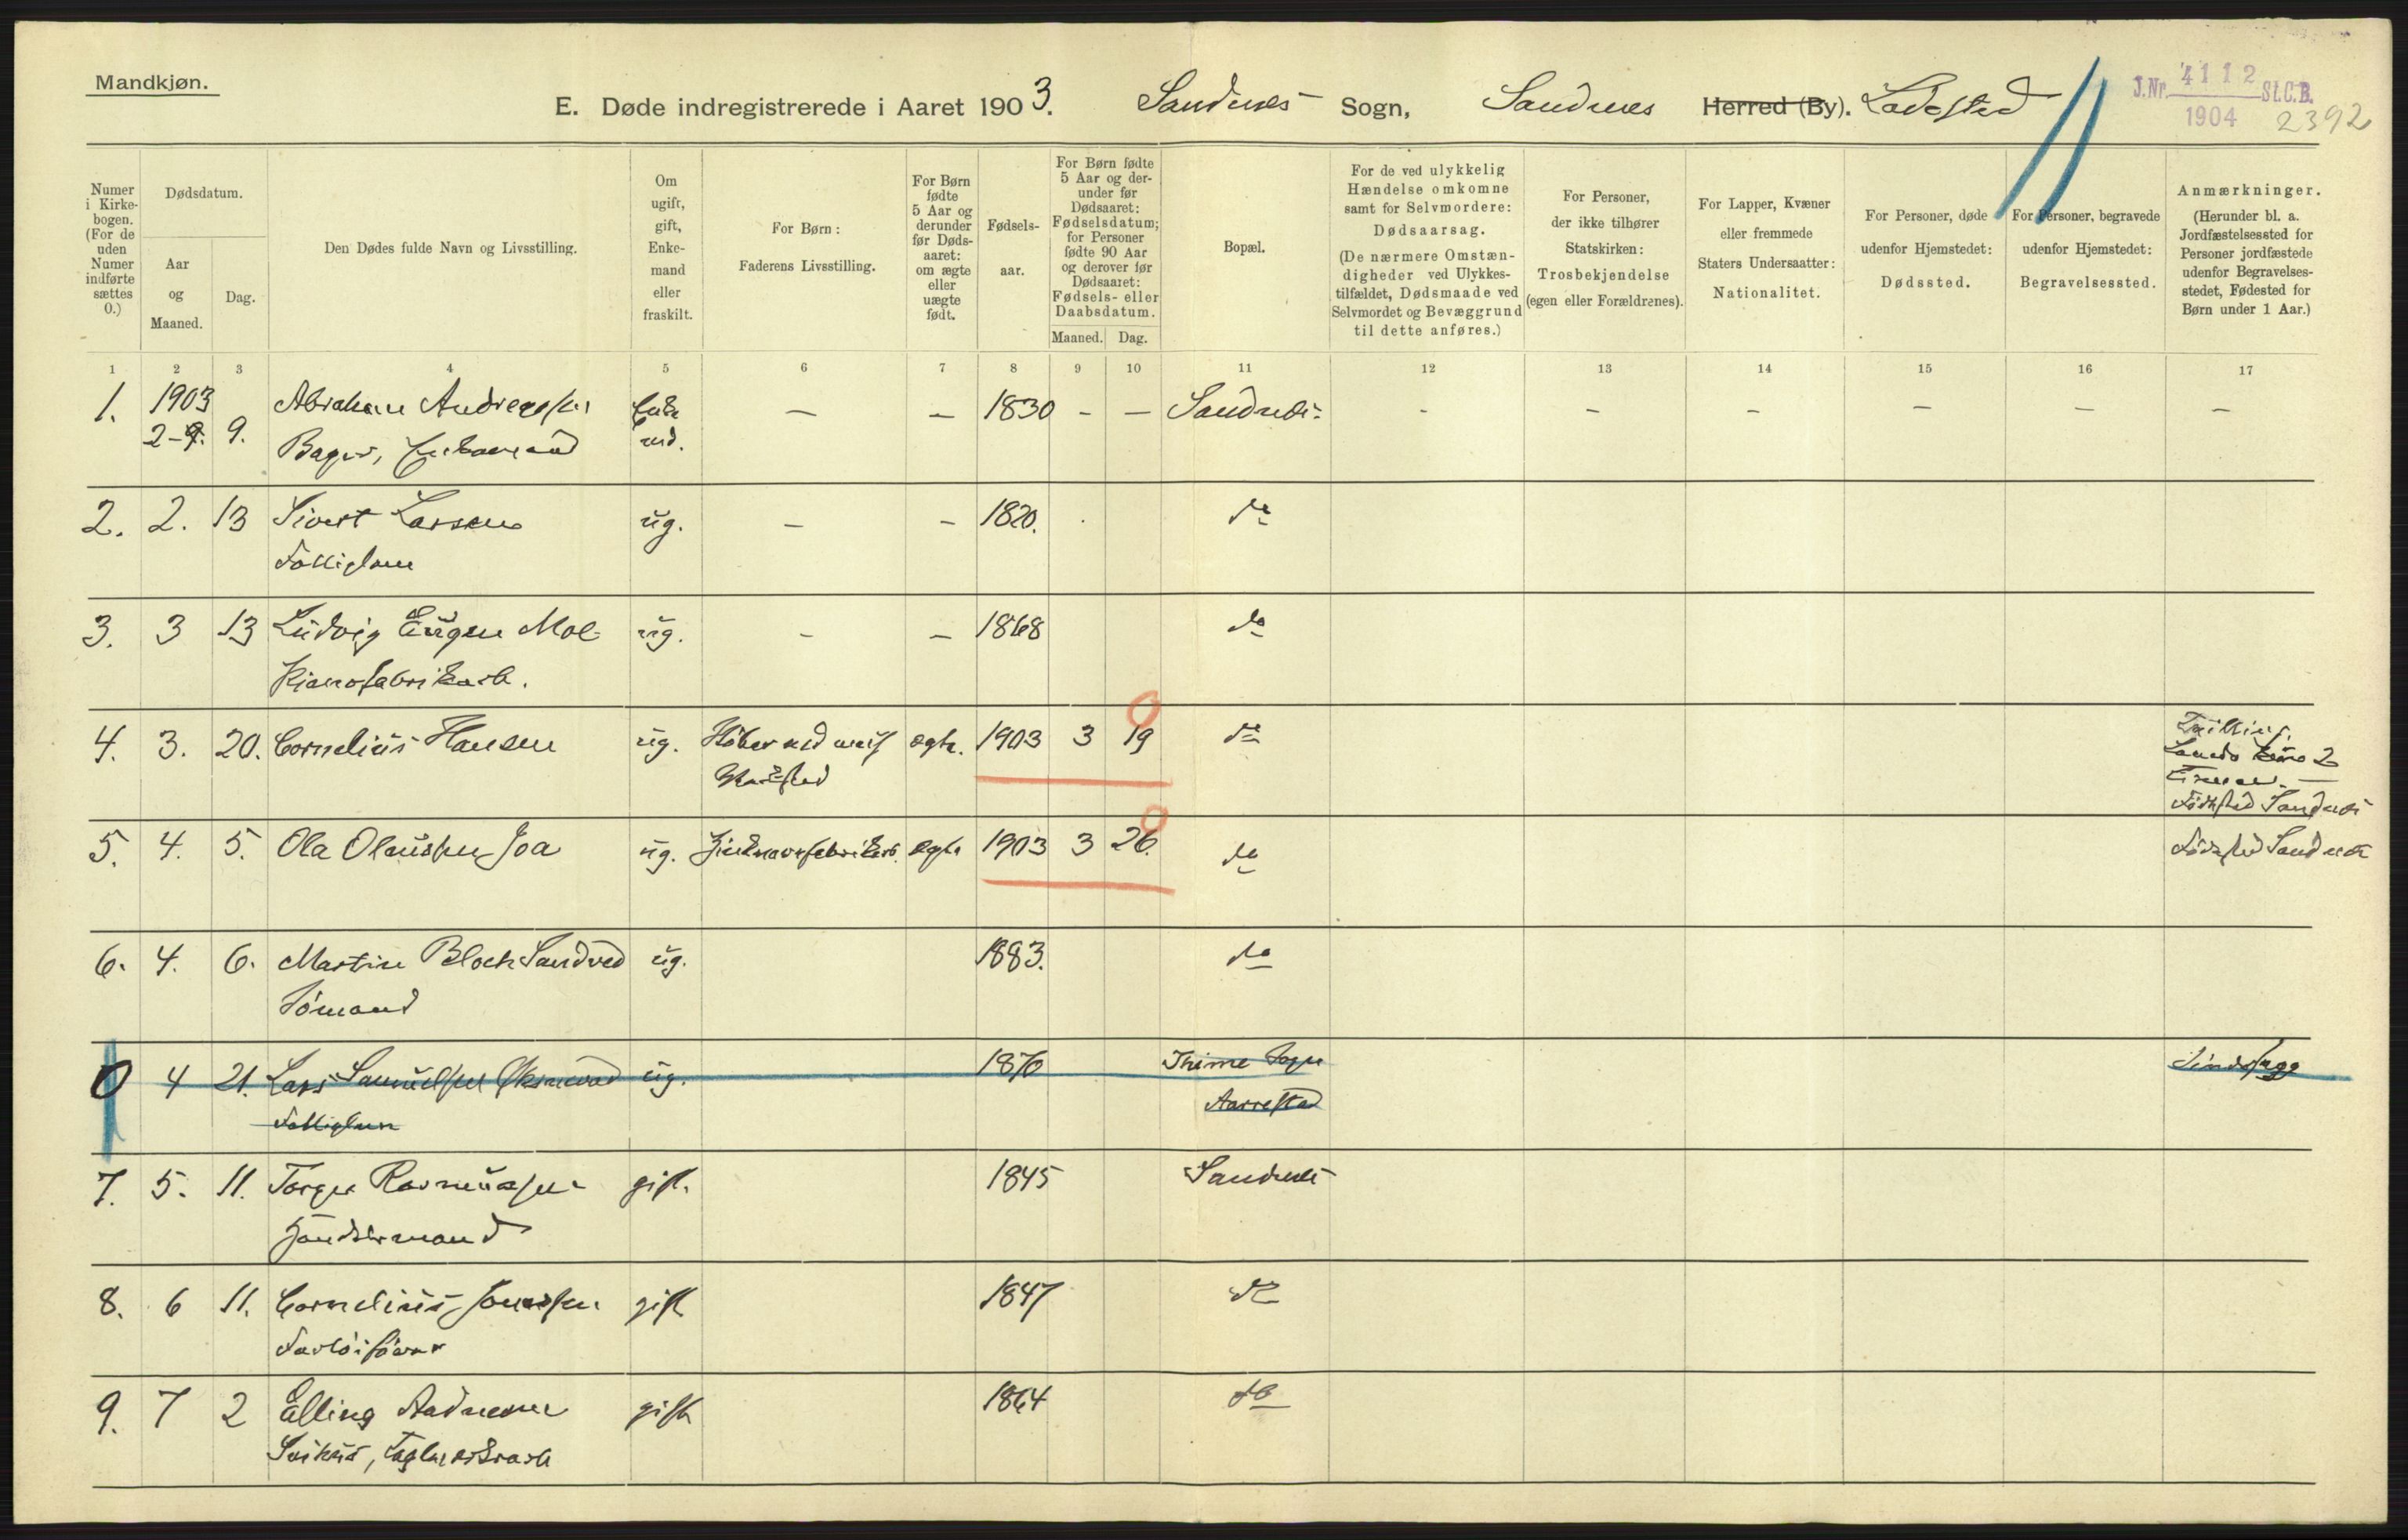 Mandkjøn.
E. Døde indregistrerede i Aaret 1903. Sandnes Sogn, Sandnes Herred (By). Ladested
J.Nr. 4112 St.C.B.
1904 2392
Numer i Kirkebogen. (For de uden Numer indførte sættes 0.)
Dødsdatum.
Aar og Maaned.
Dag.
Den Dødes fulde Navn og Livsstilling.
Om ugift, gift, Enkemand eller fraskilt.
For Børn: Faderens Livsstilling.
For Børn fødte 5 Aar og derunder før Dødsaaret: om ægte eller uægte født.
Fødselsaar.
For Børn fødte 5 Aar og derunder før Dødsaaret: Fødselsdatum; for Personer fødte 90 Aar og derover før Dødsaaret: Fødsels- eller Daabsdatum.
Maaned. Dag.
Bopæl.
For de ved ulykkelig Hændelse omkomne samt for Selvmordere: Dødsaarsag.
(De nærmere Omstændigheder ved Ulykkestilfældet, Dødsmaade ved Selvmordet og Bevæggrund til dette anføres.)
For Personer, der ikke tilhører Statskirken: Trosbekjendelse (egen eller Forældrenes).
For Lapper, Kvæner eller fremmede Staters Undersaatter: Nationalitet.
For Personer, døde udenfor Hjemstedet: Dødssted.
For Personer, begravede udenfor Hjemstedet: Begravelsessted.
Anmærkninger.
(Herunder bl. a. Jordfæstelsessted for Personer jordfæstede udenfor Begravelsesstedet, Fødested for Børn under 1 Aar.)
1 2 3 4 5 6 7 8 9 10 11 12 13 14 15 16 17
1. 1903 2 9. Abraham Andreassen — — 1830 - — Sandnes - — — — — —
Bager, Enkemand
2. 2. 13 Sivert Larsen ug. — — 1820. do
Fattiglem
3. 3 13 Ludvig Eugen Moe ug. - — 1868 do
Pianofabrikarb.
4. 3. 20. Cornelius Hansen ug. ægte. 1903 3 19 do Tvilling.
Fødested Sandnes
5. 4. 5. Ola Olaussen Joa ug. ægte 1903 3 26. do Fødested Sandnes
6. 4. 6. Martin Bloch Sandved ug. 1883. do
Sømand
0 4 21. Lars Samuelsen Øksnevad ug. 1870 Thime Sogn
Fattiglem Aarrestad
7. 5. 11. Torger Rasmussen gift. 1845 Sandnes
8. 6 11. Cornelius Jonassen gift 1847 do
9. 7 2 Elling Aadnesen gift 1864 do